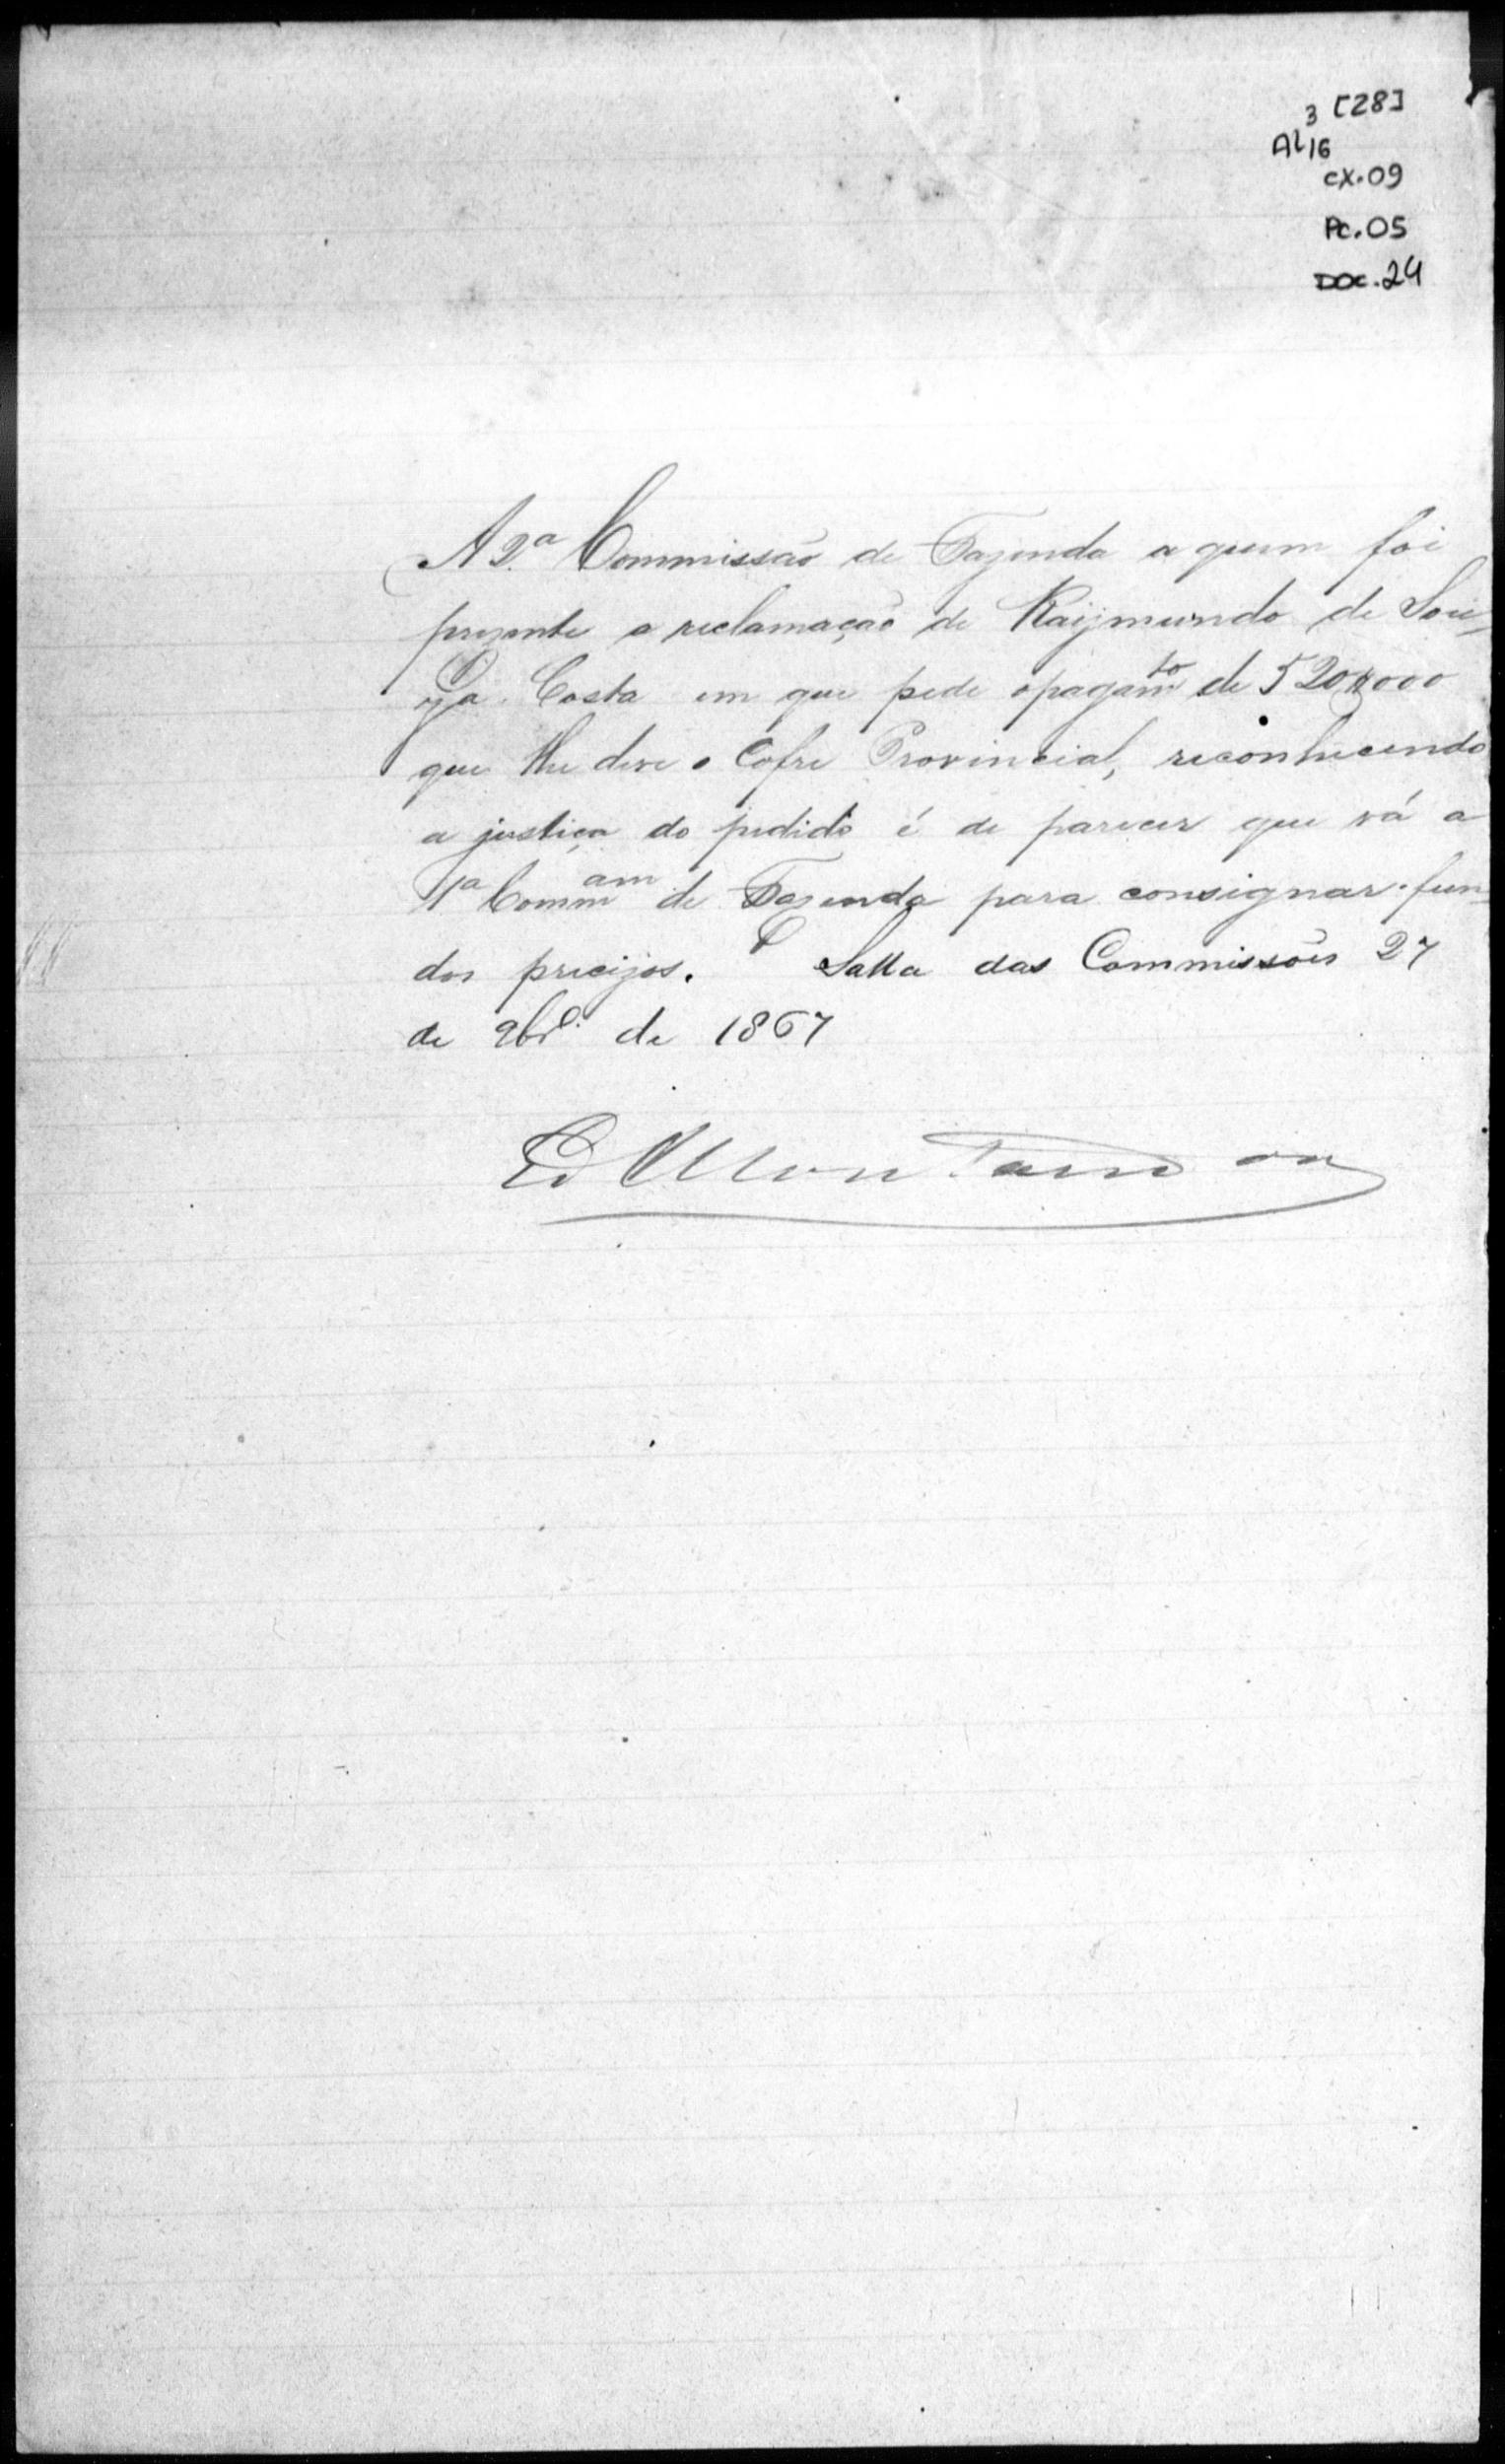 3 [28]
AL16
CX.09
Pc.05
DOC.24
A 2.ª Commissão de Fazenda a quem foi
prezente a reclamação de Raijmundo de Sou-
za Costa em que pede o pagamto de 520$000
que lhe deve o Cofre Provincial, reconhecendo
a justiça do pedido é de parecer que vá a
1ª Commam de Fazenda para consignar fun-
dos precizos. Salla das Commissões 27
de 9br.º de 1867
Ed Montandon